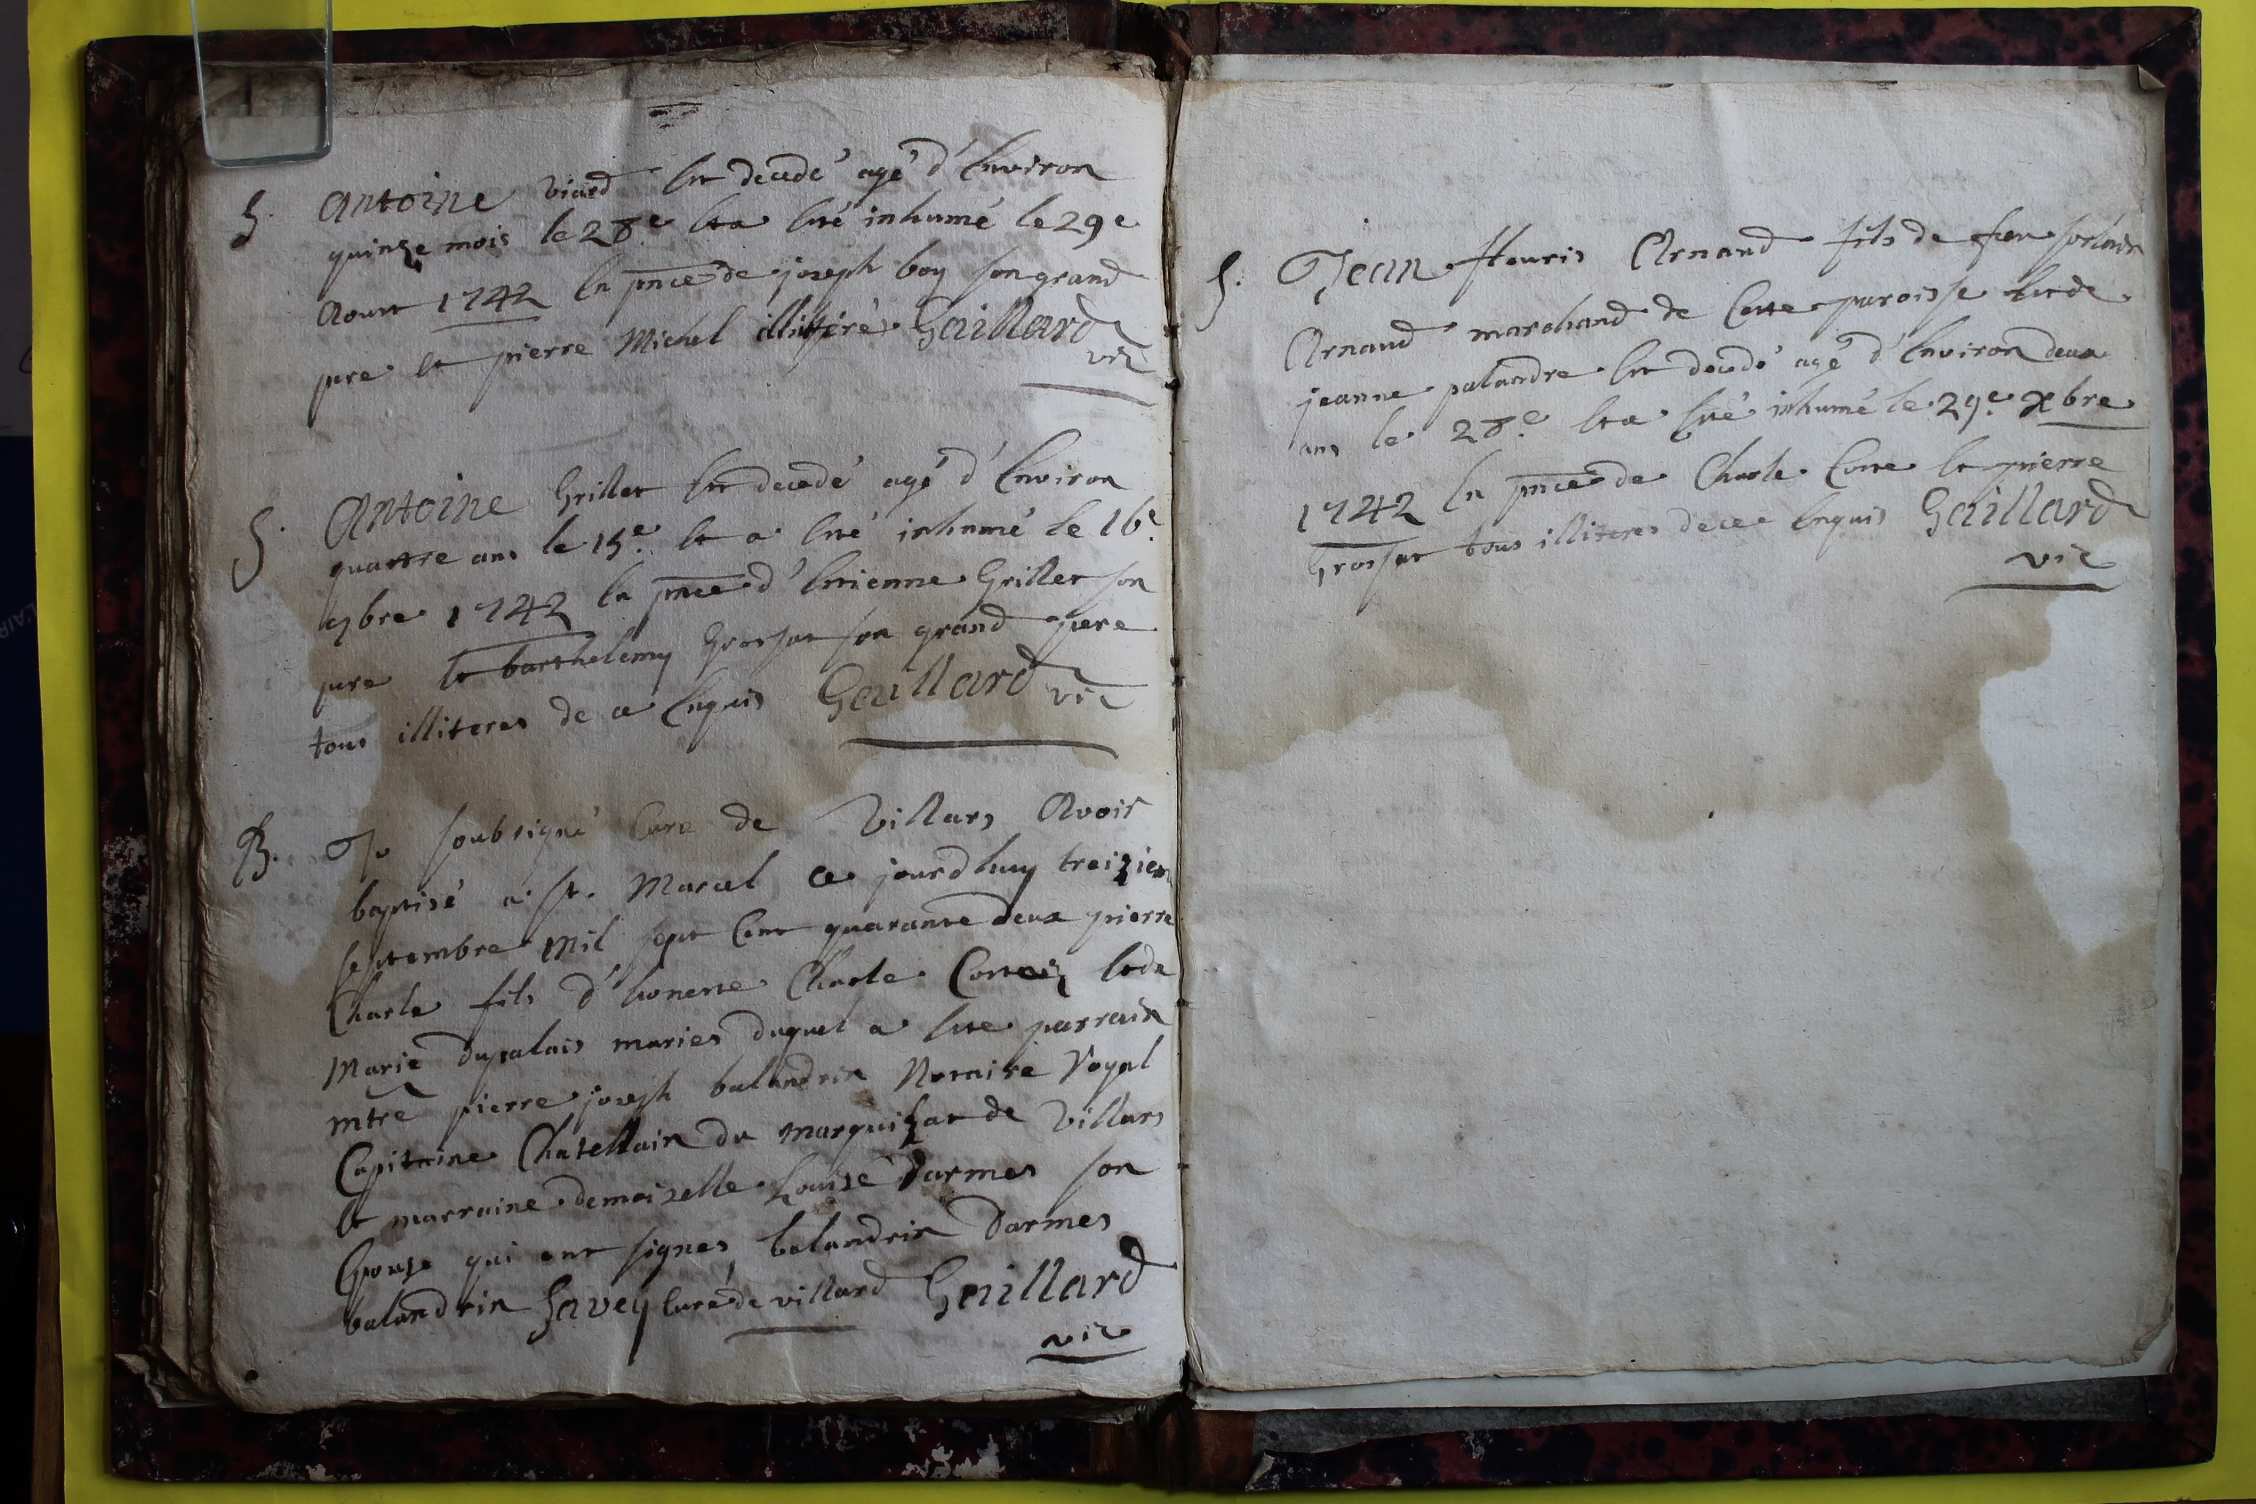 S. Antoine viard Est decedé agé d'Environ
quinze mois le 28e Et a Eté inhumé le 29e
Aoust 1742 En pnce de joseph boy son grand
pere Et pierre Michel illiteré Gaillard
vic
S. Antoine Grillet Est decedé agé d'Environ
quattre ans le 15e Et a Eté inhumé le 16e
9bre 1742 En pnce d'Etienne Grillet son
pere Et barthelemy Grossat son grand pere
tous illiteres de ce Enquis Gaillard vic
B. Je soubsigné Curé de Villars Avoir
baptisé a St. Marcel ce jourdhuy treiziem
septembre mil sept Cent quarante deux pierre
Charle fils d'honeste Charle Et de
Marie dupalais maries duquel a Eté parrain
mtre pierre joseph balandrin Notaire Royal
Capitaine Chatellain du marquizat de Villars
Et marraine demoiselle Louise Darmes son
Epouse qui ont signes, balandrin Darmes
balandrin Javey Curé de villard Gaillard
vic
S. Jean Arnaud fils de feu
Arnaud marchand de Cette paroisse Et de
jeanne palandre Est decedé agé d'Environ deux
ans le 28e Et a Eté inhumé le 29e Xbre
1742 En pnce de Charle Et pierre
Grossat tous illiteres de ce Enquis Gaillard
vic